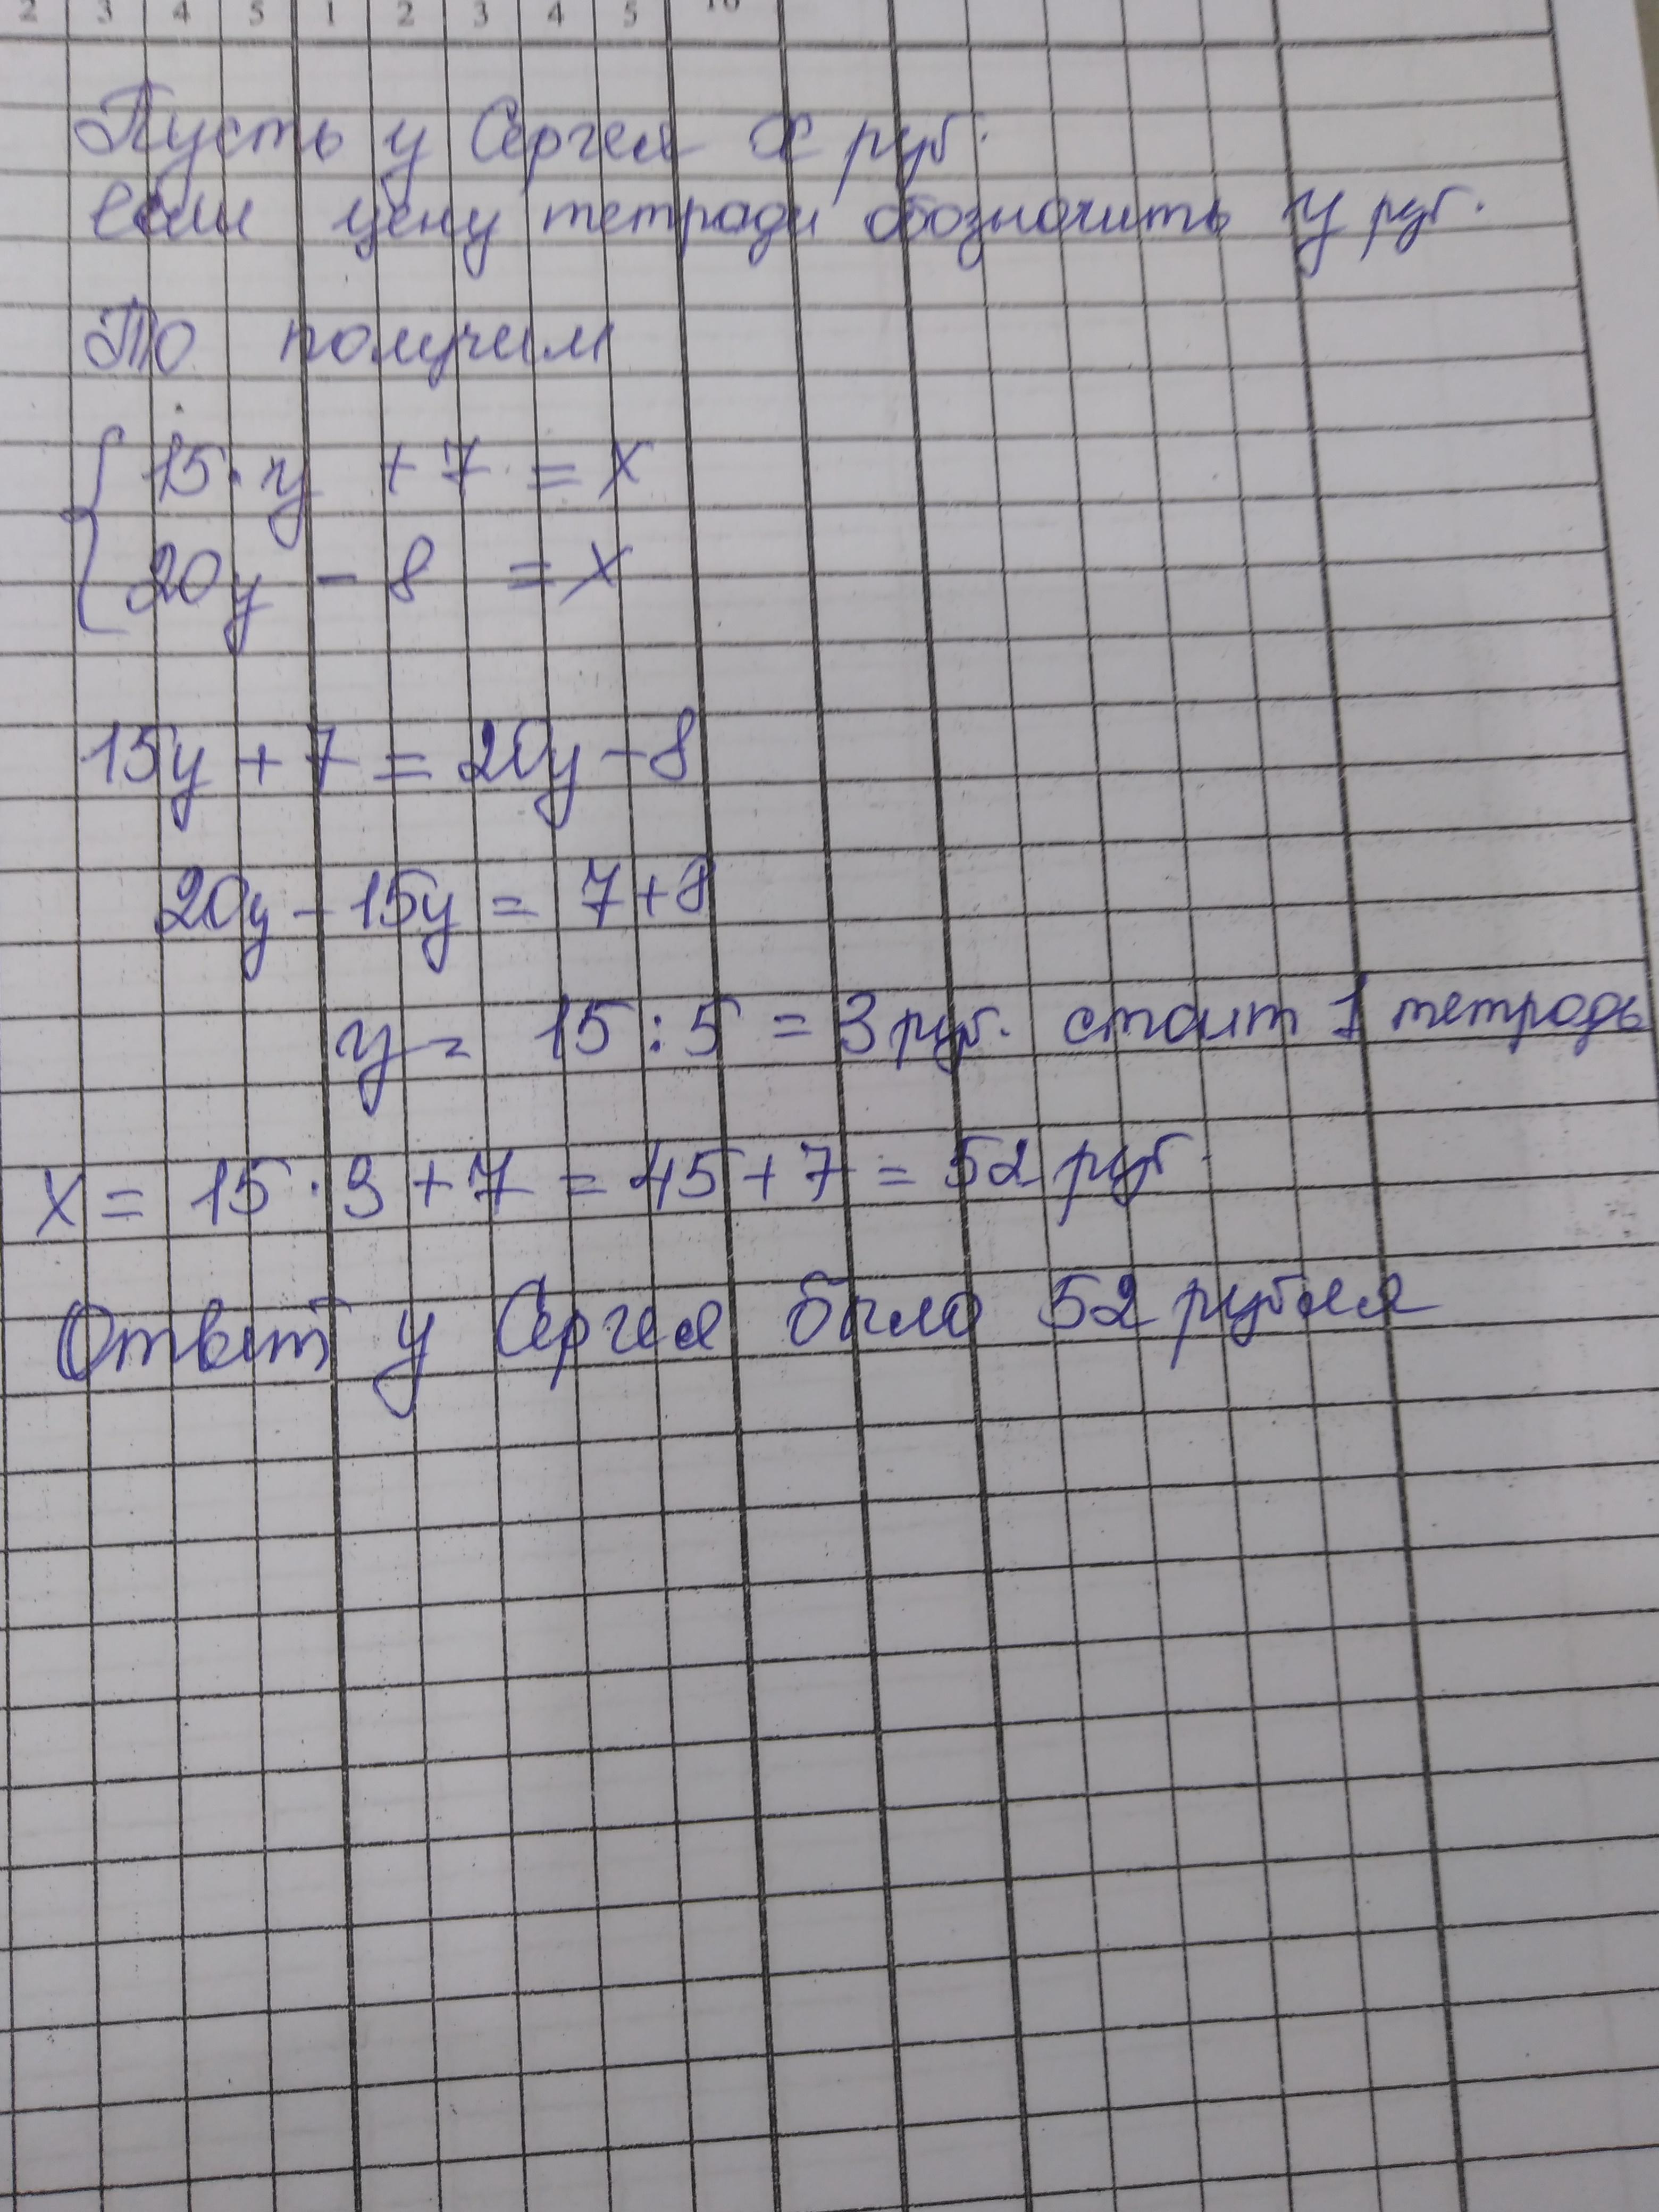 2 3 4 5 1 2 3 4 5 10
Пусть у Сергея х руб.
если цену тетради обозначить у руб.
То получим
15·у +7 = х
20у - 8 = х
15у + 7 = 20у - 8
20у - 15у = 7+8
у = 15:5 = 3 руб. стоит 1 тетрадь
х = 15·3+7 = 45+7 = 52 руб.
Ответ у Сергея было 52 рубля